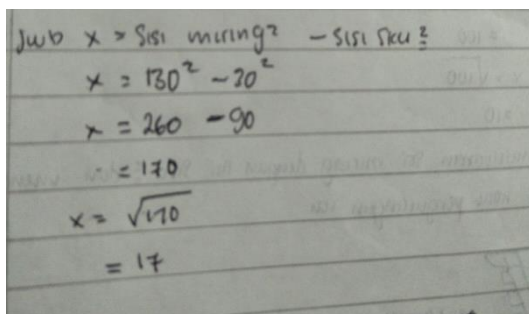 Jwb x = Sisi miring² - sisi siku²
x = 130² - 30²
x = 260 - 90
= 170
x = √170
= 17